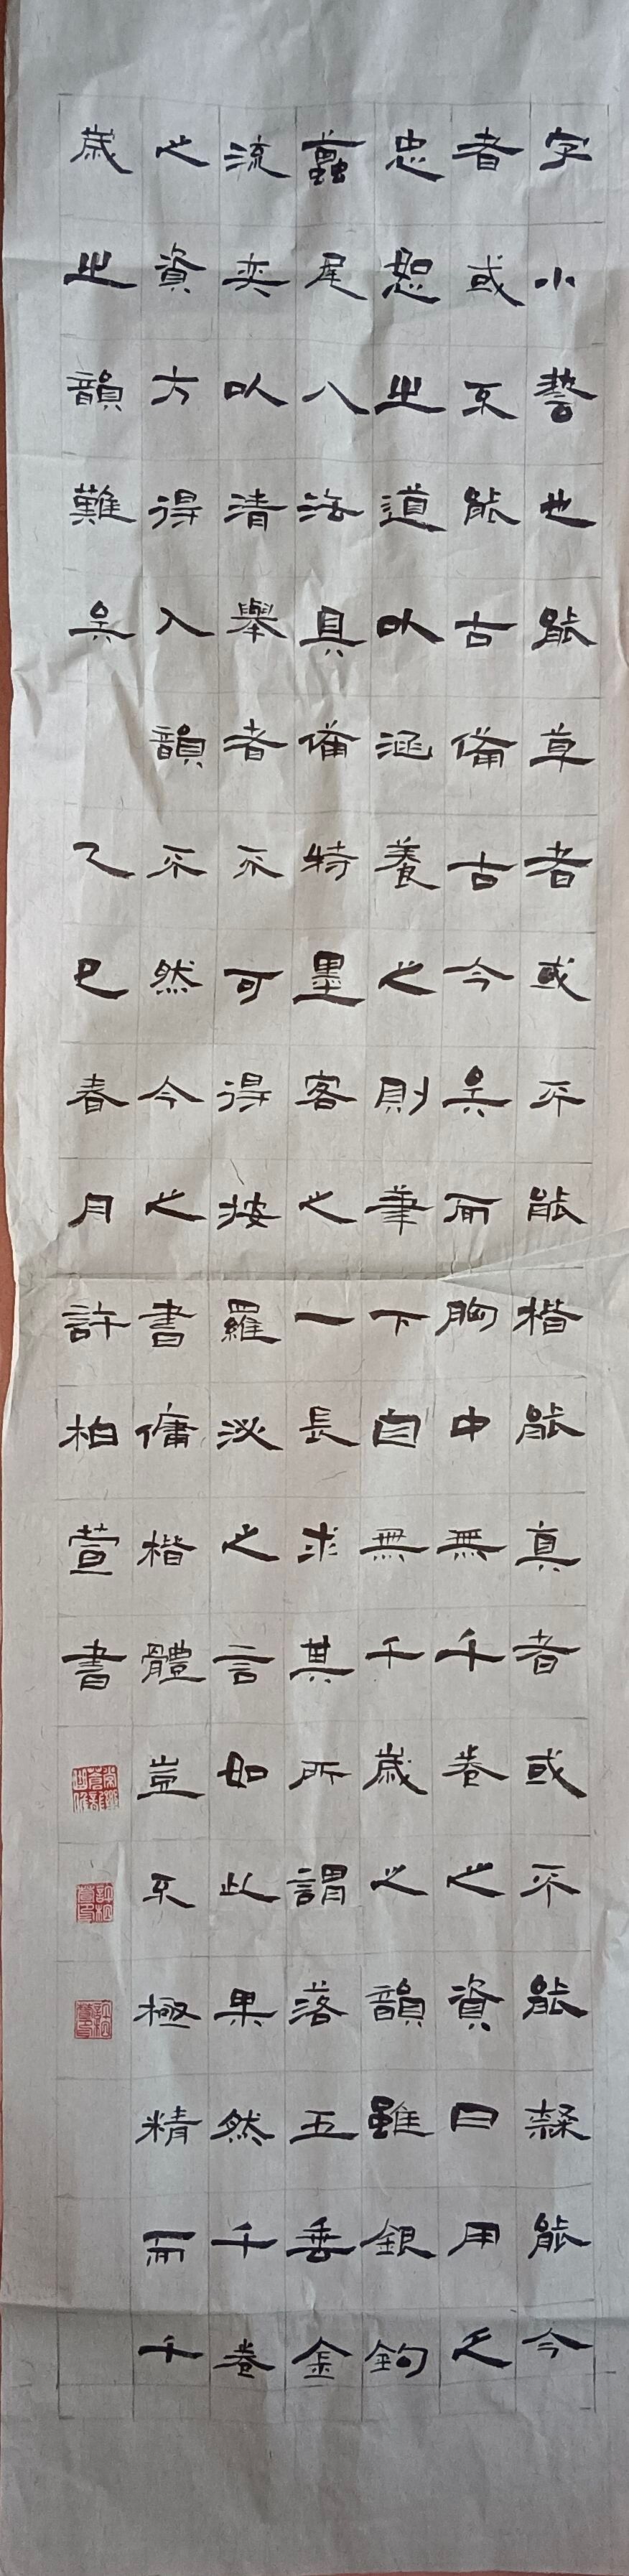 字小藝也能草者或不能楷能真者或不能隸能今
者或不能古備古今矣而胸中無千卷之資日用乏
忠恕之道以涵養之則筆下自無千歲之韻雖銀鉤
蠆尾八法具備特墨客之一長求其所謂落五垂金
流奕以清舉者不可得按羅泌之言如此果然千卷
之資方得入韻不然今之書傭楷體豈不極精而千
歲之韻難矣 乙巳春月許柏萱書